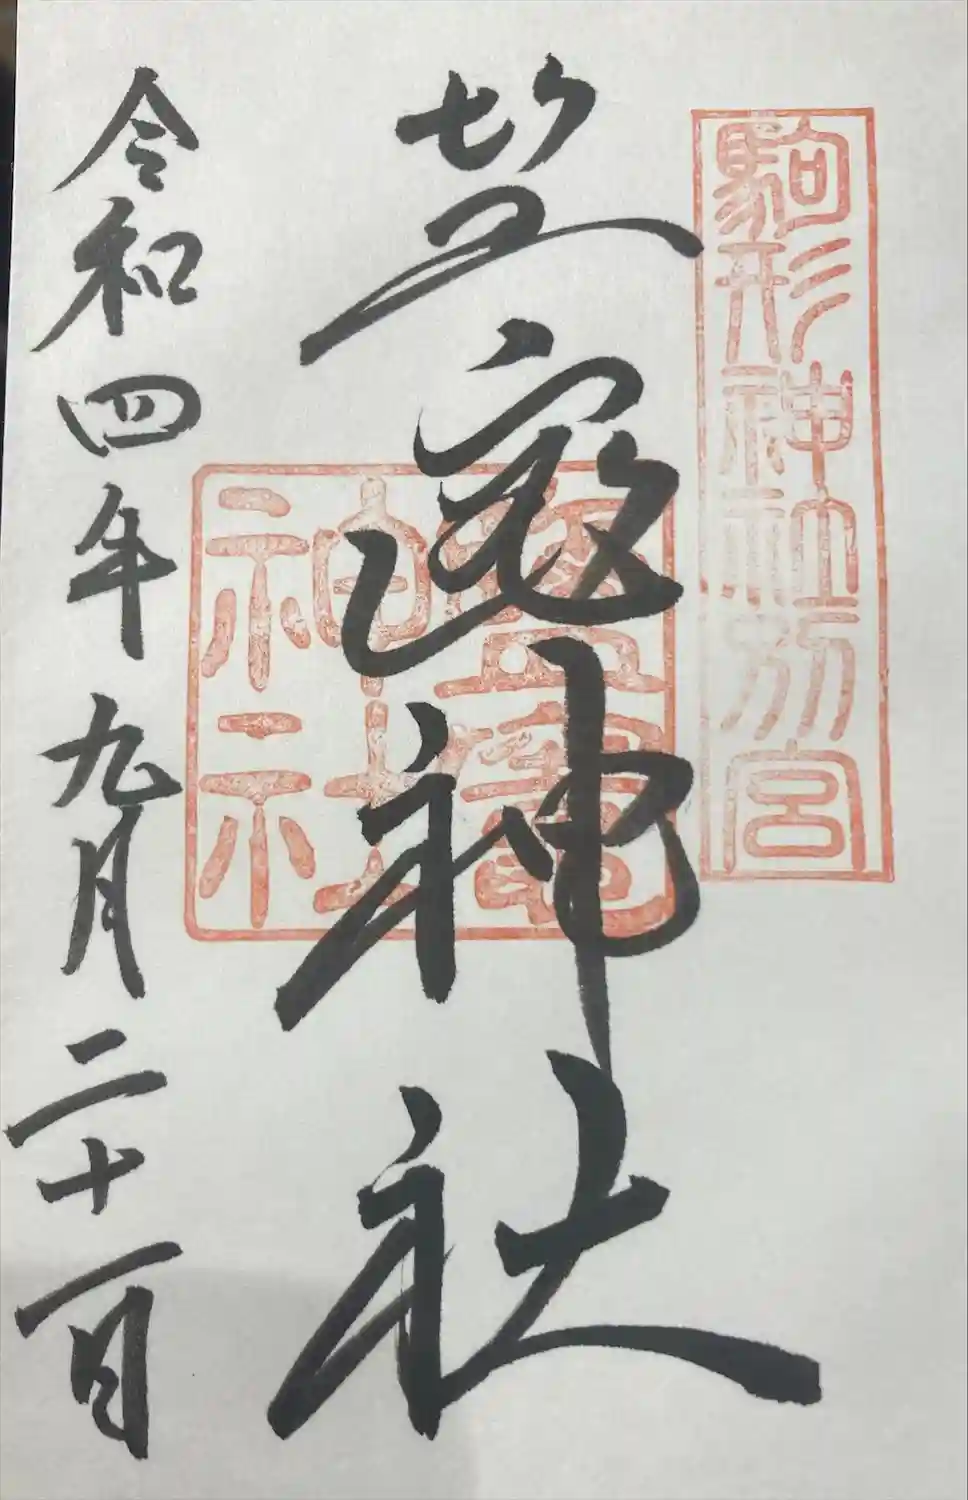 駒形神社別宮
鹽竈神社
鹽竈神社
令和四年九月二十一日